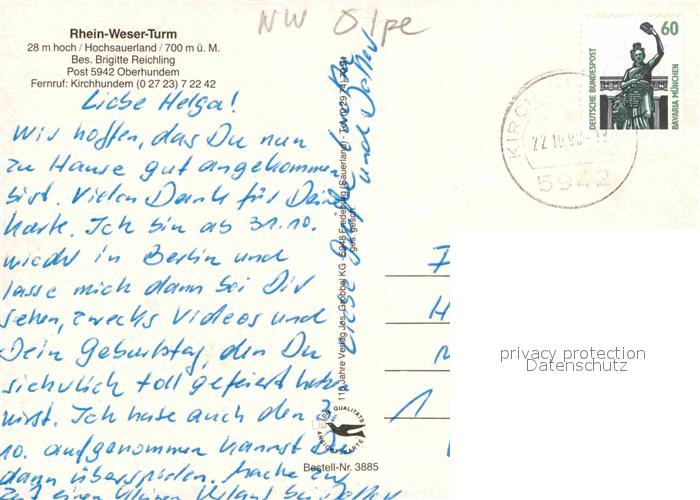 NW Olpe
Rhein-Weser-Turm
28 m hoch / Hochsauerland / 700 m ü. M.
Bes. Brigitte Reichling
Post 5942 Oberhundem
Fernruf: Kirchhundem (0 27 23) 7 22 42
Liebe Helga!
Wir hoffen, das Du nun
zu Hause gut angekommen
bist. Vielen Dank für Deine
Karte. Ich bin ab 31.10.
wieder in Berlin und
lasse mich dann bei Dir
sehen, zwecks Videos und
Dein Geburtstag, den Du
sicherlich toll gefeiert hast
Ich habe auch den 3.
10. aufgenommen kannst Du
dann überspielen. Mache zur
Zeit einen kleinen Urlaub bei Detlev
Liebe Grüße
und Detlev
110 Jahre Verlag Jos. Grobbel KG · 5948 Fredeburg (Sauerland)
ges. gesch.
QUALITÄTS
ANSICHTSKARTE
Bestell-Nr. 3885
60
DEUTSCHE BUNDESPOST
BAVARIA MÜNCHEN
KIRCH
5942
F
H
1
privacy protection
Datenschutz